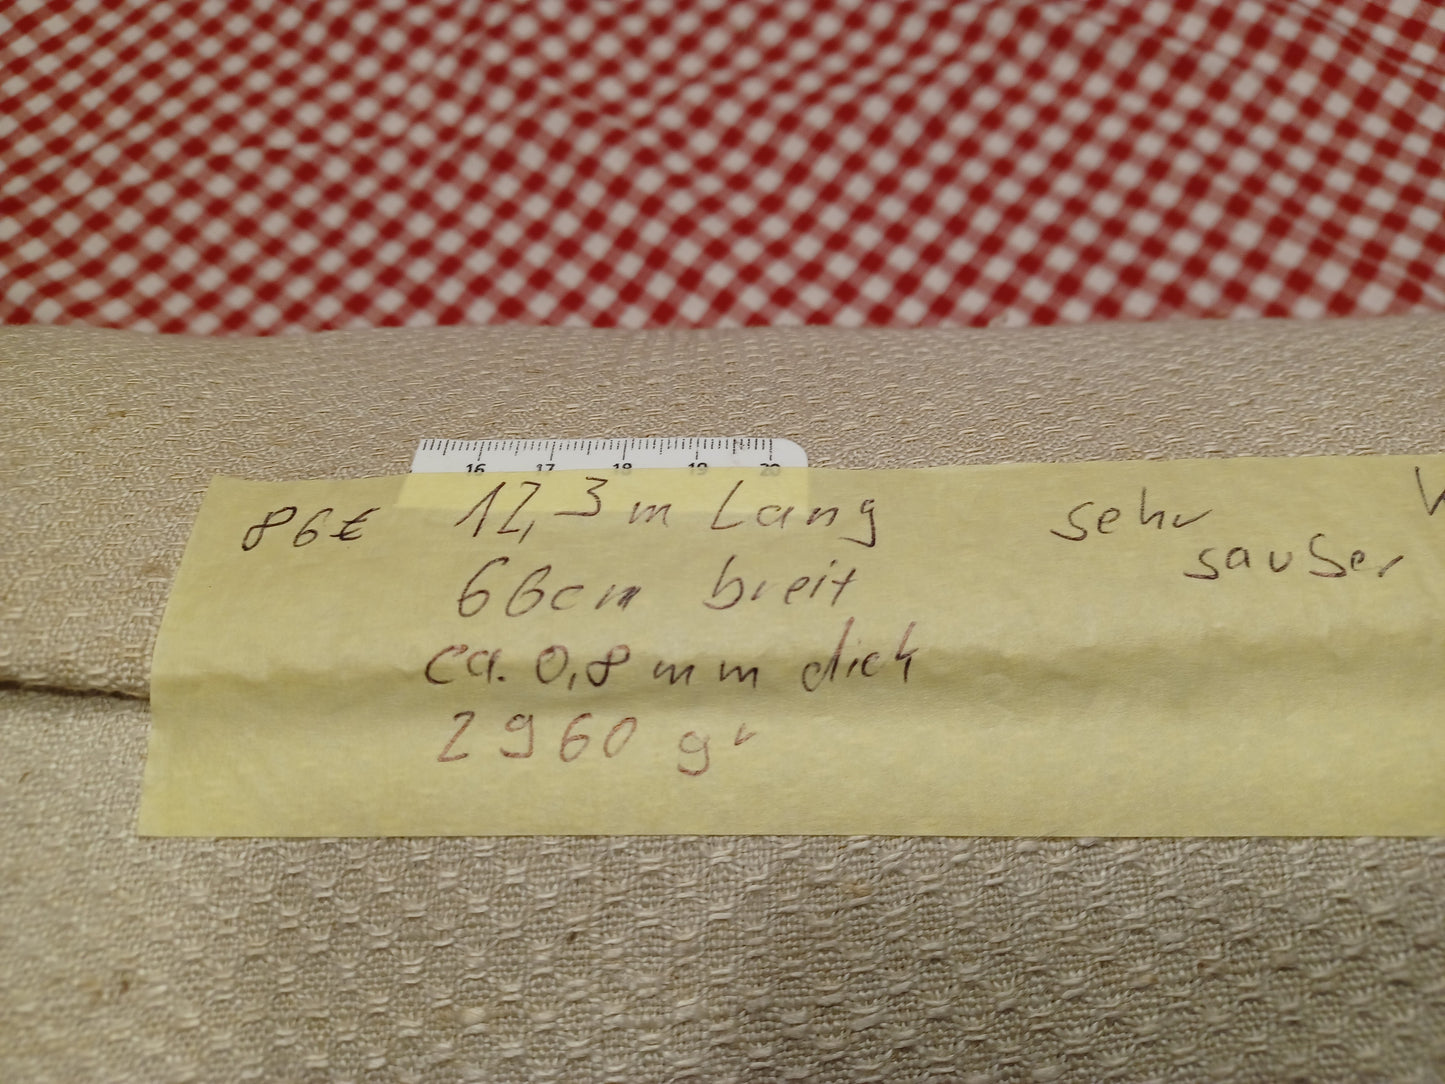 16 17 18 19 20
86€ 12,3 m Lang sehr
sauber
66cm breit
ca. 0,8 mm dick
2960 gr